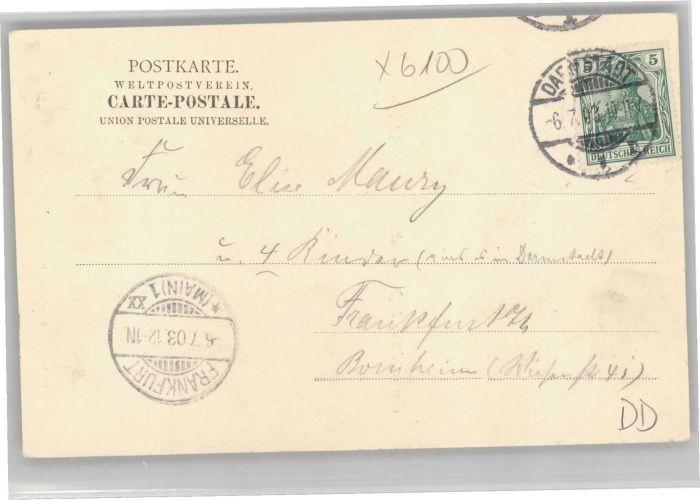 POSTKARTE.
WELTPOSTVEREIN.
CARTE-POSTALE.
UNION POSTALE UNIVERSELLE.
X6100
DARMSTADT
-6.7.03.
5
DEUTSCHES REICH
Frau Elise Maury
u. 4 Kinder ( in Darmstadt)
Frankfurt
Bornheim (Wiesenstr 41)
*(MAIN)1 XX
-6.7.03.12-1N.
FRANKFURT
DD